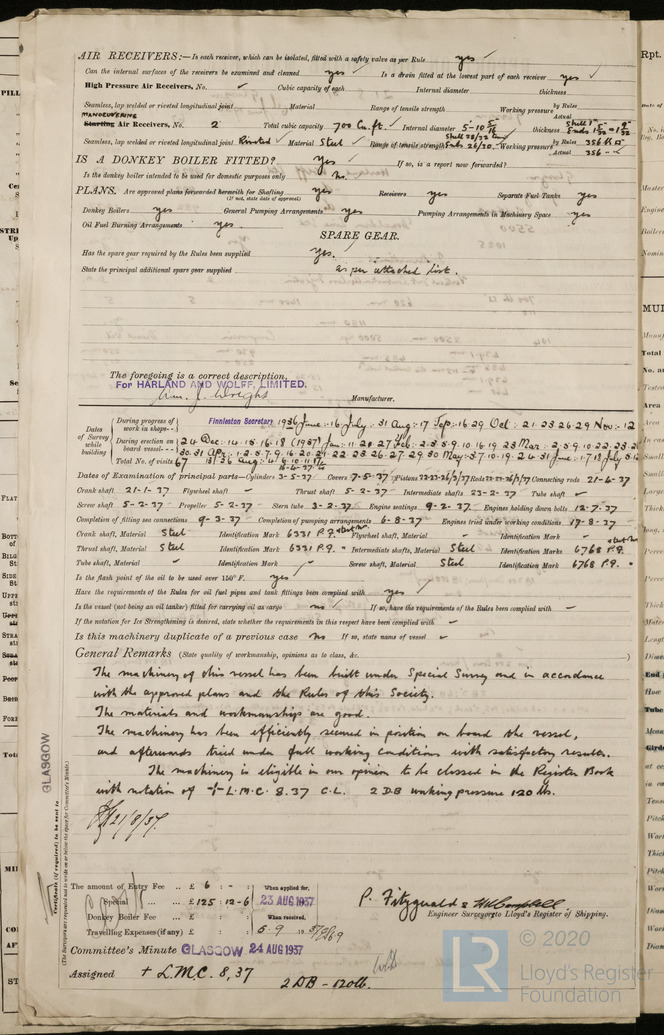 AIR RECEIVERS:—Is each receiver, which can be isolated, fitted with a safety valve as per Rule yes ✓
Can the internal surfaces of the receivers be examined and cleaned yes ✓ Is a drain fitted at the lowest part of each receiver yes ✓
High Pressure Air Receivers, No. ✓ Cubic capacity of each Internal diameter thickness
Seamless, lap welded or riveted longitudinal joint Material Range of tensile strength Working pressure by Rules Actual
MANOEUVERING
Starting Air Receivers, No. 2 Total cubic capacity 700 Cu.ft. ✓ Internal diameter 5-10 thickness Shell Ends
Seamless, lap welded or riveted longitudinal joint Riveted ✓ Material Steel ✓ Range of tensile strength Shell 28/32 Ends 26/30 Working pressure by Rules 356
Actual 356
IS A DONKEY BOILER FITTED? yes ✓ If so, is a report now forwarded?
Is the donkey boiler intended to be used for domestic purposes only no.
PLANS. Are approved plans forwarded herewith for Shafting yes Receivers yes Separate Fuel Tanks yes
(If not, state date of approval)
Donkey Boilers yes General Pumping Arrangements yes Pumping Arrangements in Machinery Space yes
Oil Fuel Burning Arrangements yes
SPARE GEAR.
Has the spare gear required by the Rules been supplied yes.
State the principal additional spare gear supplied as per attached list.
The foregoing is a correct description,
For HARLAND AND WOLFF, LIMITED.
Manufacturer.
Dates of Survey while building
During progress of work in shops-- Finnieston Secretary 1936 June:-16 July:-31 Aug:-17 Sep:-16.29 Oct:-21.23.26.29 Nov:-12
During erection on board vessel--- 24 Dec:-14.15.16.18 (1937) Jan:-11.20.27 Feb:-2.3.5.9.10.16.19.23 Mar:-2.5.9.10.22.23.26
30.31 Apr:-1.2.5.7.9.16.20.21.22.23.26.27.29.30 May:-3.7.10.19.24.31 June:-1.7.18 July
Total No. of visits 67
Dates of Examination of principal parts—Cylinders 3-5-37 Covers 7-5-37 Pistons Rods Connecting rods 21-4-37
Crank shaft 21-1-37 Flywheel shaft ✓ Thrust shaft 5-2-37 Intermediate shafts 23-2-37 Tube shaft ✓
Screw shaft 5-2-37 Propeller 5-2-37 Stern tube 3-2-37 Engine seatings 9-2-37 Engines holding down bolts 12-7-37
Completion of fitting sea connections 9-3-37 Completion of pumping arrangements 6-8-37 Engines tried under working conditions 17-8-37
Crank shaft, Material Steel Identification Mark 6331 P.F. Flywheel shaft, Material ✓ Identification Mark ✓
Thrust shaft, Material Steel Identification Mark 6331 P.F. Intermediate shafts, Material Steel Identification Marks 6768 P.F.
Tube shaft, Material ✓ Identification Mark ✓ Screw shaft, Material Steel Identification Mark 6768 P.F.
Is the flash point of the oil to be used over 150° F. yes ✓
Have the requirements of the Rules for oil fuel pipes and tank fittings been complied with yes ✓
Is the vessel (not being an oil tanker) fitted for carrying oil as cargo no ✓ If so, have the requirements of the Rules been complied with ✓
If the notation for Ice Strengthening is desired, state whether the requirements in this respect have been complied with ✓
Is this machinery duplicate of a previous case no If so, state name of vessel ✓
General Remarks (State quality of workmanship, opinions as to class, &c.
The machinery of this vessel has been built under Special Survey and in accordance
with the approved plans and the Rules of this Society.
The materials and workmanship are good.
The machinery has been efficiently secured in position on board the vessel,
and afterwards tried under full working conditions with satisfactory results.
The machinery is eligible in our opinion to be classed in the Register Book
with notation of + L.M.C. 8.37 C.L. 2 DB working pressure 120 lbs.
21/8/37.
GLASGOW
Certificate (if required) to be sent to
(The Surveyors are requested not to write on or below the space for Committee's Minute.)
The amount of Entry Fee .. £ 6 : - : When applied for,
Special .. .. £ 125 : 12-6 23 AUG 1937
Donkey Boiler Fee .. £ : : When received,
Travelling Expenses (if any) £ : : 6.9.1937
P. Fitzgerald & H. Campbell
Engineer Surveyors to Lloyd's Register of Shipping.
Committee's Minute GLASGOW 24 AUG 1937
Assigned + L.M.C. 8,37
2 DB - 120 lb.
LR © 2020
Lloyd's Register
Foundation